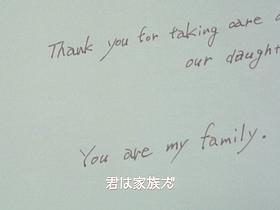 Thank you for taking care o
our daught
You are my family.
君は家族だ